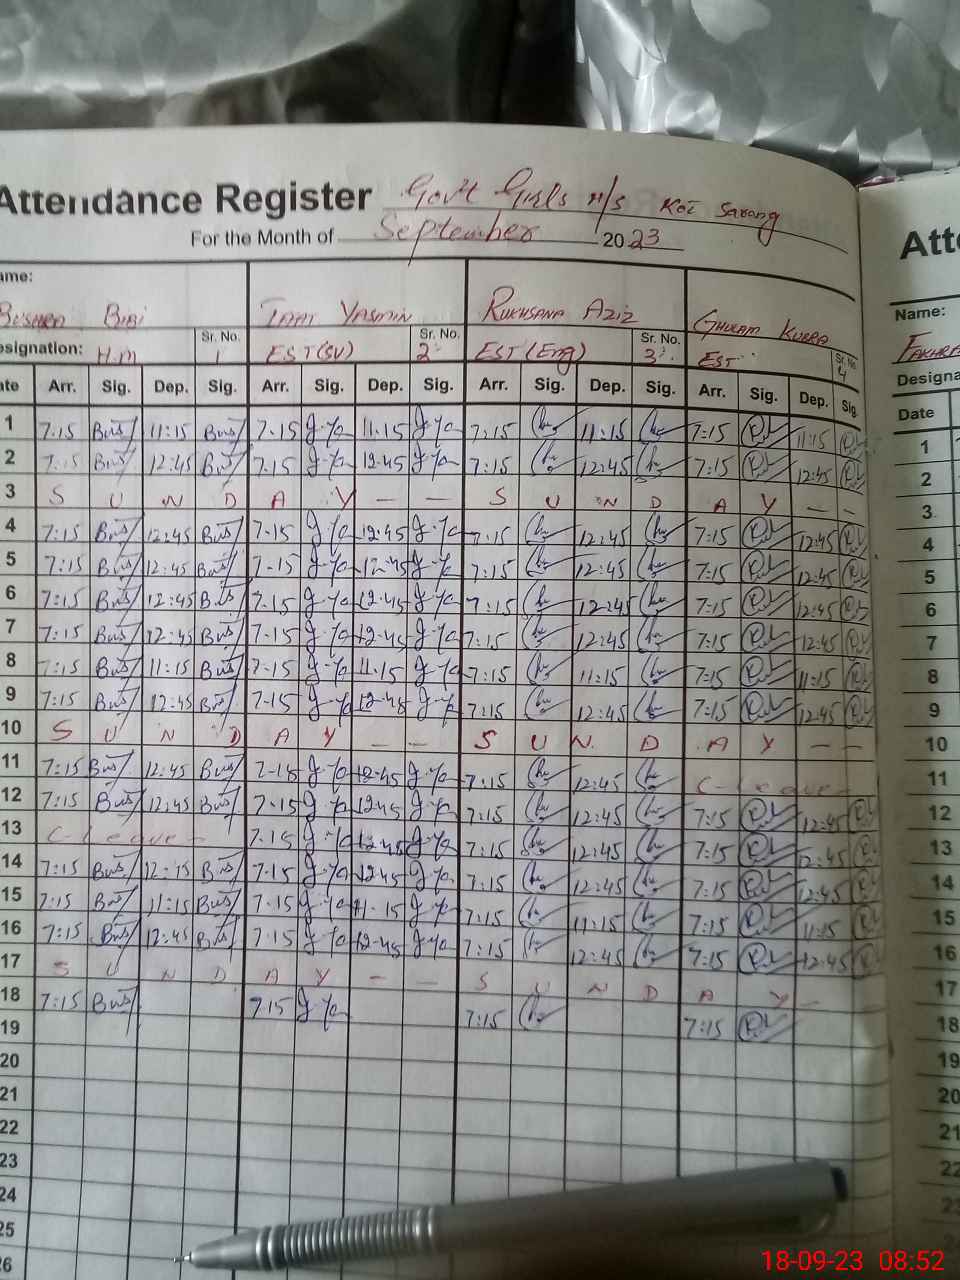 Attendance Register Govt Girls H/S Kot Sarang
For the Month of September 2023
ame:
Bushra Bibi Taat Yasmin Rukhsana Aziz Ghulam Kubra
esignation: H.M Sr. No. 1 EST(SV) Sr. No. 2 EST(Eng) Sr. No. 3 EST Sr. No 4
ate Arr. Sig. Dep. Sig. Arr. Sig. Dep. Sig. Arr. Sig. Dep. Sig. Arr. Sig. Dep. Sig.
1 7:15 11:15 7-15 11.15 7:15 11:15 7:15 11:15
2 7:15 12:45 7.15 12.45 7:15 12:45 7:15 12:45
3 S U N D A Y – – S U N D A Y – –
4 7:15 12:45 7-15 12:45 7:15 12:45 7:15 12:45
5 7:15 12:45 7-15 12-45 7:15 12:45 7:15 12:45
6 7:15 12:45 7.15 12.45 7:15 12:45 7:15 12:45
7 7:15 12:45 7-15 12-45 7:15 12:45 7:15 12:45
8 7:15 11:15 7-15 11.15 7:15 11:15 7:15 11:15
9 7:15 12:45 7-15 12-45 7:15 12:45 7:15 12:45
10 S U N D A Y – – S U N. D A Y – –
11 7:15 12:45 7-15 12-45 7:15 12:45 C-Leave-
12 7:15 12:45 7.15 12.45 7:15 12:45 7:15 12:45
13 C-Leave- 7.15 12.45 7:15 12:45 7:15 12:45
14 7:15 12:45 7.15 12.45 7:15 12:45 7:15 12:45
15 7:15 11:15 7.15 11.15 7:15 11:15 7:15 11:15
16 7:15 12:45 7.15 12-45 7:15 12:45 7:15 12:45
17 S U N D A Y – – S U N D A Y –
18 7:15 7 15 7:15 7:15
19
20
21
22
23
24
25
26
Atte
Name:
Fakhra
Designa
Date
1
2
3
4
5
6
7
8
9
10
11
12
13
14
15
16
17
18
19
20
21
22
23
18-09-23 08:52